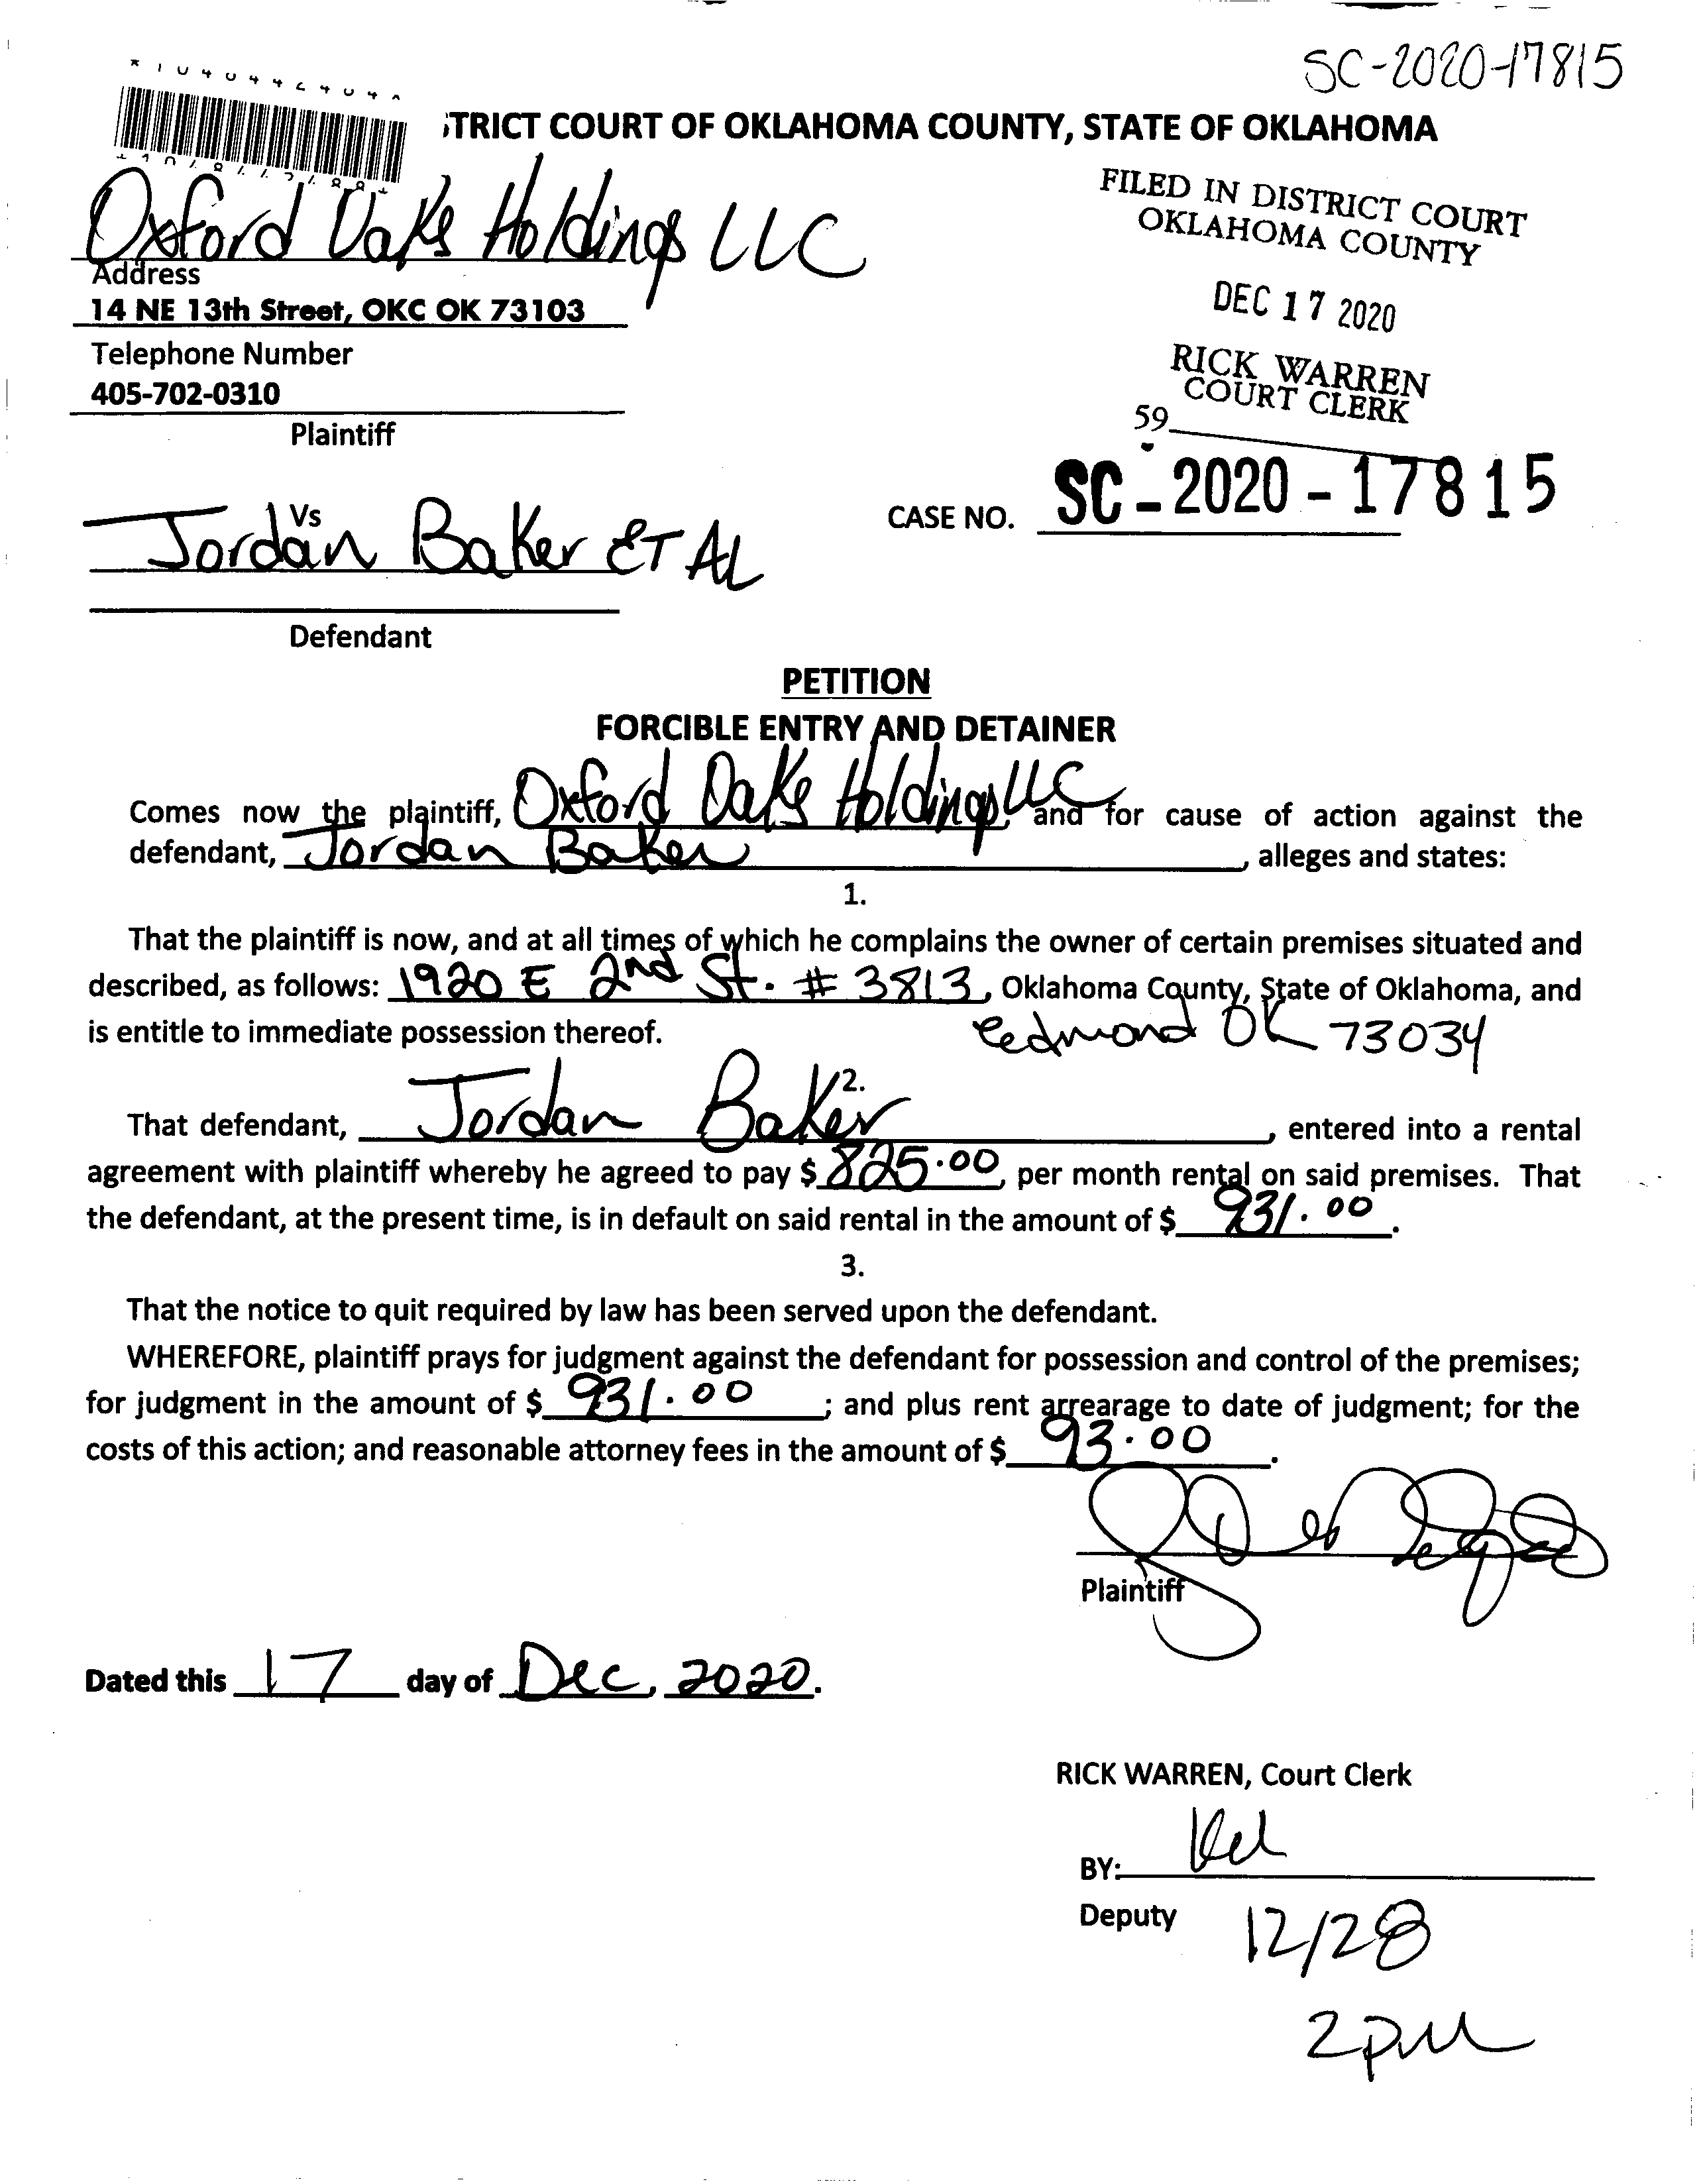 SC-2020-17815
TRICT COURT OF OKLAHOMA COUNTY, STATE OF OKLAHOMA
Oxford Oaks Holdings LLC
Address
14 NE 13th Street, OKC OK 73103
Telephone Number
405-702-0310
Plaintiff
FILED IN DISTRICT COURT
OKLAHOMA COUNTY
DEC 17 2020
RICK WARREN
COURT CLERK
59
CASE NO. SC-2020-17815
Vs
Jordan Baker ET AL
Defendant
PETITION
FORCIBLE ENTRY AND DETAINER
Comes now the plaintiff, Oxford Oaks Holdings LLC, and for cause of action against the
defendant, Jordan Baker, alleges and states:
1.
That the plaintiff is now, and at all times of which he complains the owner of certain premises situated and
described, as follows: 1920 E 2nd St. # 3813, Oklahoma County, State of Oklahoma, and
is entitle to immediate possession thereof. Edmond OK 73034
2.
That defendant, Jordan Baker, entered into a rental
agreement with plaintiff whereby he agreed to pay $ 825.00, per month rental on said premises. That
the defendant, at the present time, is in default on said rental in the amount of $ 931.00.
3.
That the notice to quit required by law has been served upon the defendant.
WHEREFORE, plaintiff prays for judgment against the defendant for possession and control of the premises;
for judgment in the amount of $ 931.00; and plus rent arrearage to date of judgment; for the
costs of this action; and reasonable attorney fees in the amount of $ 93.00.
Plaintiff
Dated this 17 day of Dec, 2020.
RICK WARREN, Court Clerk
BY:
Deputy
12/28
2pm